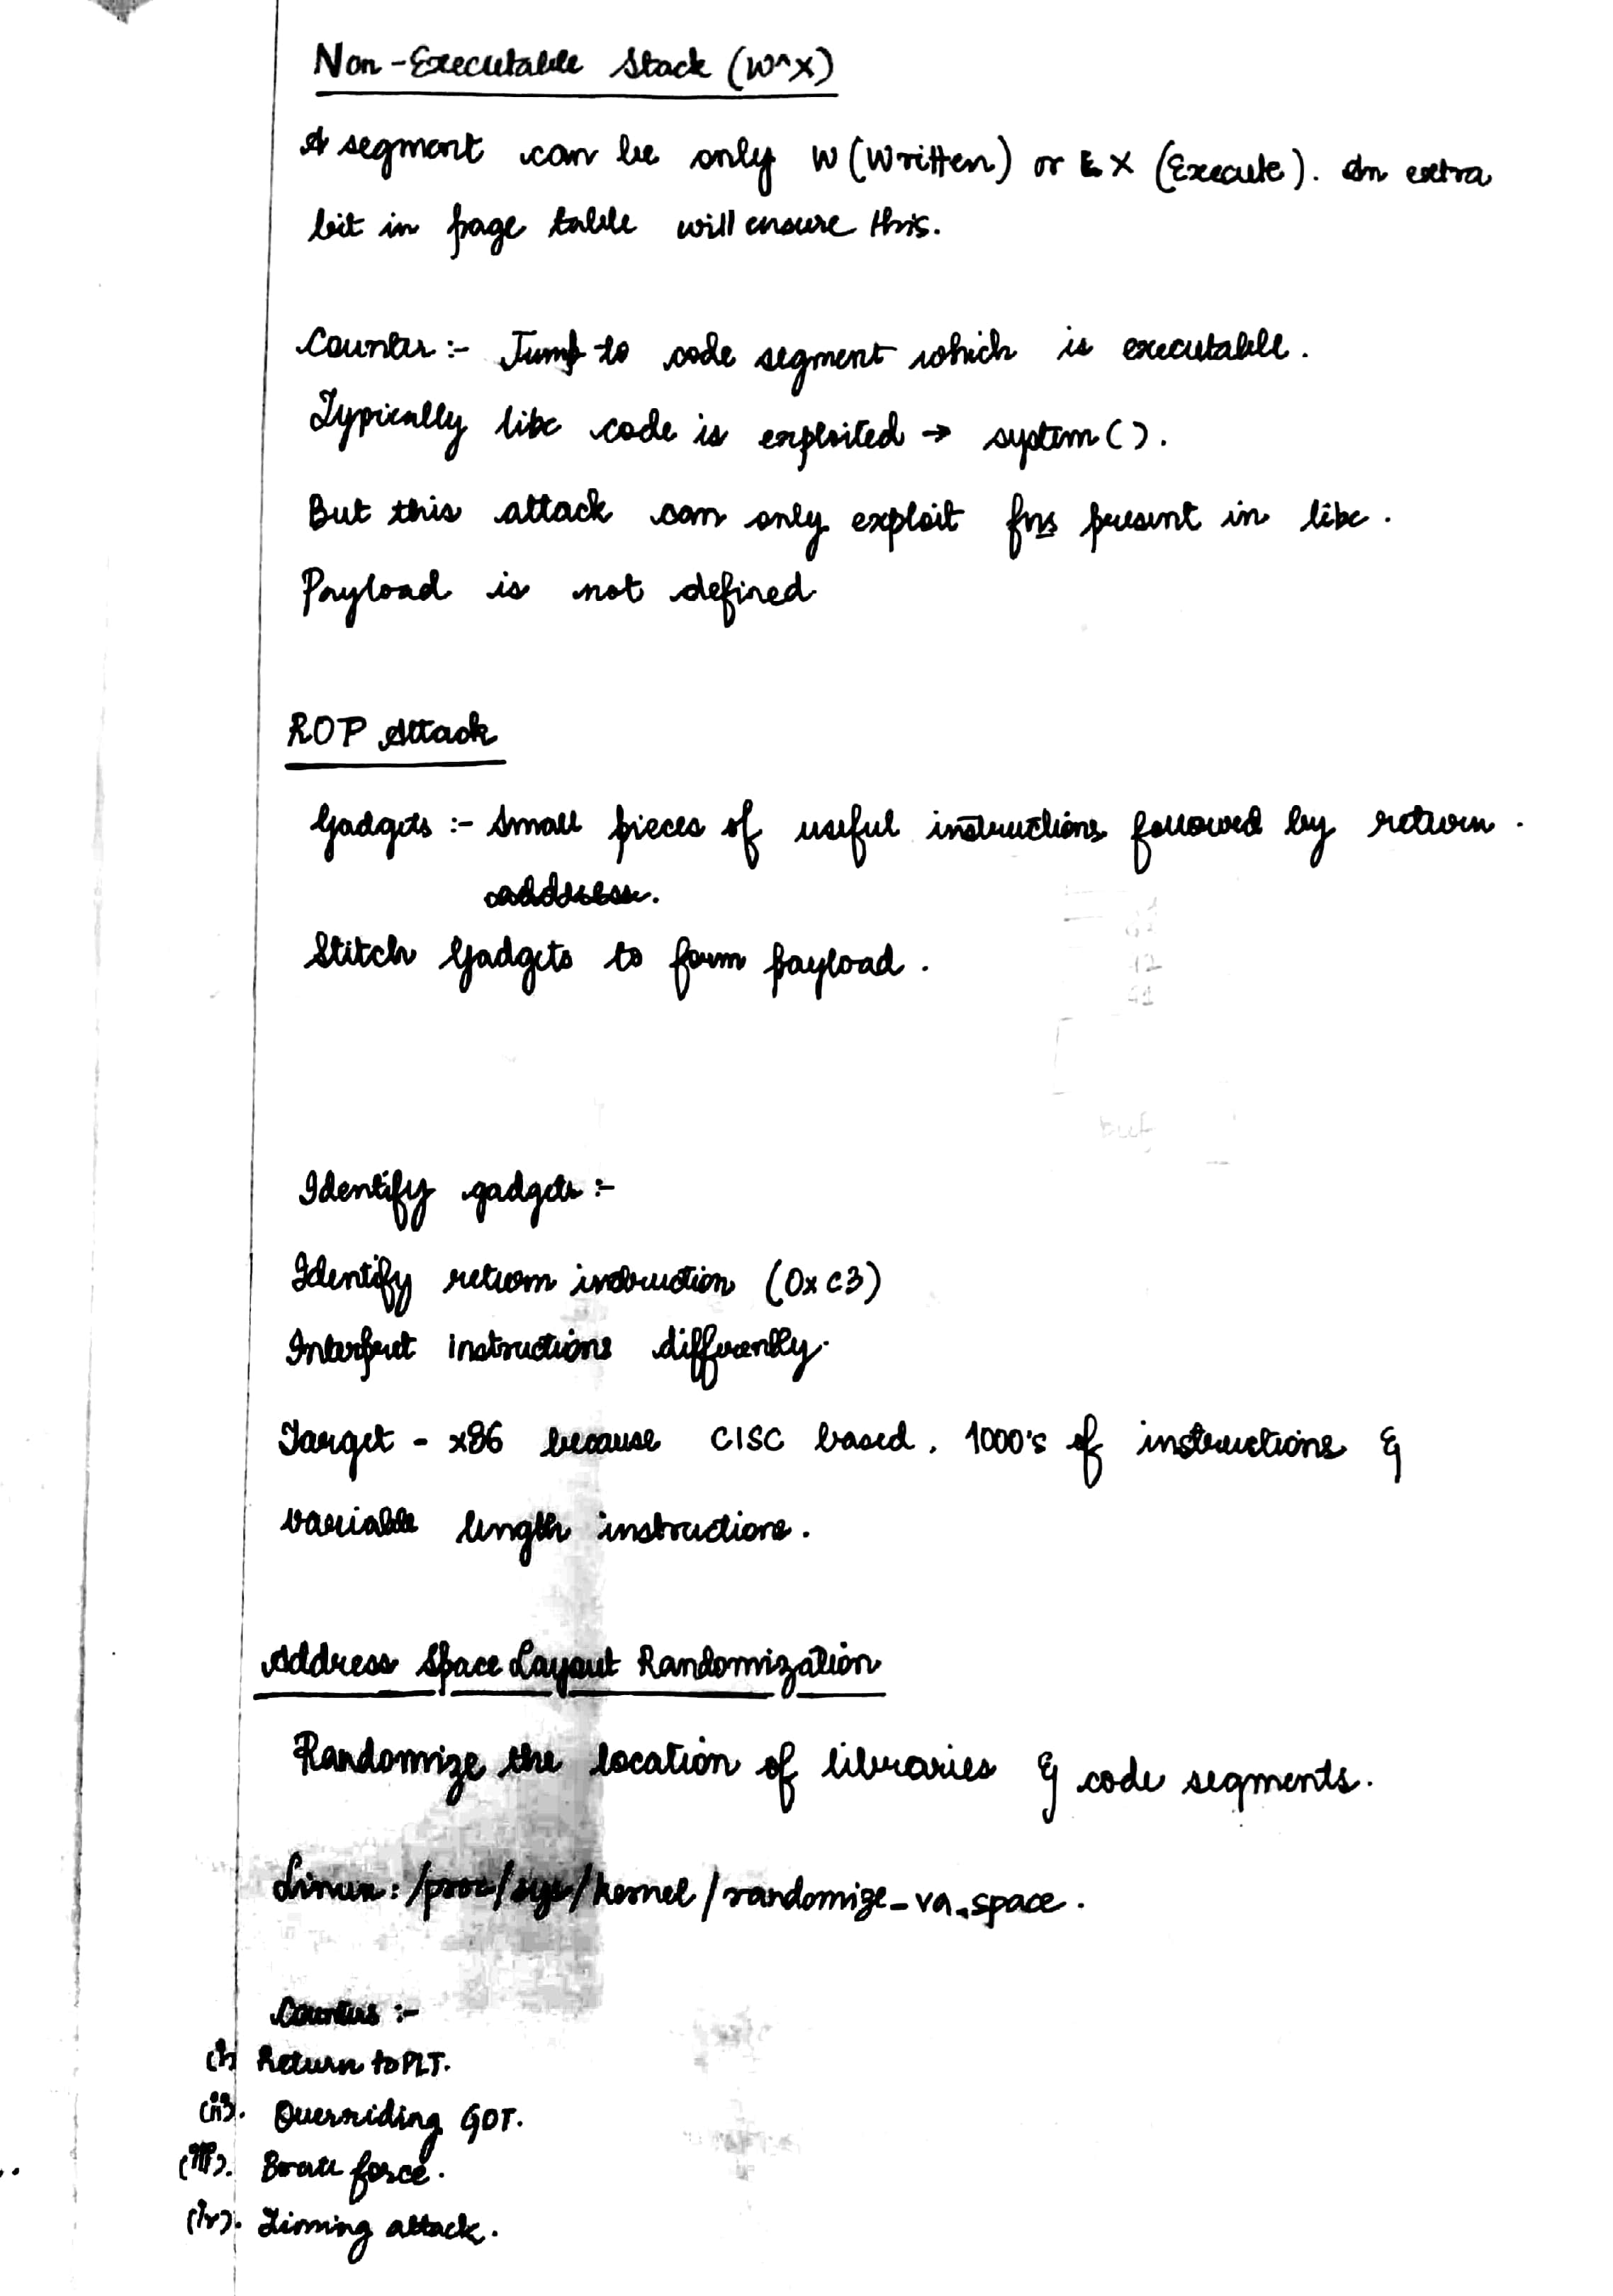 Non-Executable Stack (W^X)
A segment can be only W (Written) or X (Execute). An extra
bit in page table will ensure this.
Counter :- Jump to code segment which is executable.
Typically libc code is exploited → system().
But this attack can only exploit fns present in libc.
Payload is not defined
ROP Attack
Gadgets :- Small pieces of useful instructions followed by return.
address.
Stitch Gadgets to form payload.
Identify gadgets :-
Identify return instruction (0xc3)
Interpret instructions differently.
Target - x86 because CISC based. 1000's of instructions &
variable length instructions.
Address Space Layout Randomization
Randomize the location of libraries & code segments.
Linux: /proc/sys/kernel/randomize_va_space.
Counters :-
(i) Return to PLT.
(ii). Overriding GOT.
(iii). Brute force.
(iv). Timing attack.